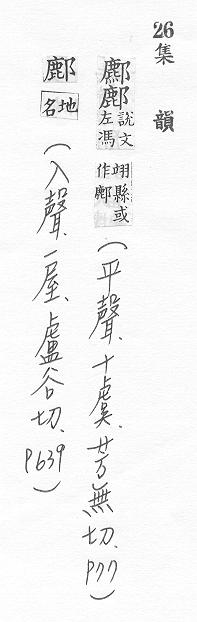 26集韻
鄜說文左馮翊縣或作鄜(平聲.十虞.芳無切.P77)
鄜地名(入聲.一屋.盧谷切.P639)